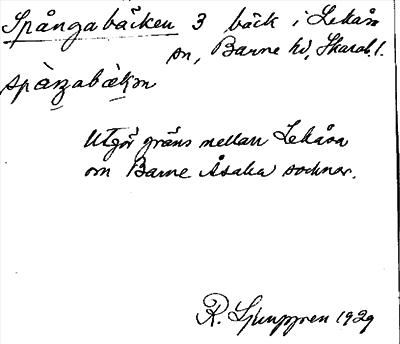 Spångabäcken 3 bäck i Lekåsa
sn, Barne hd, Skarab. l.
spàŋabæ̀kən
Utgör gräns mellan Lekåsa
om Barne Åsaka socknar.
R. Ljunggren 1929